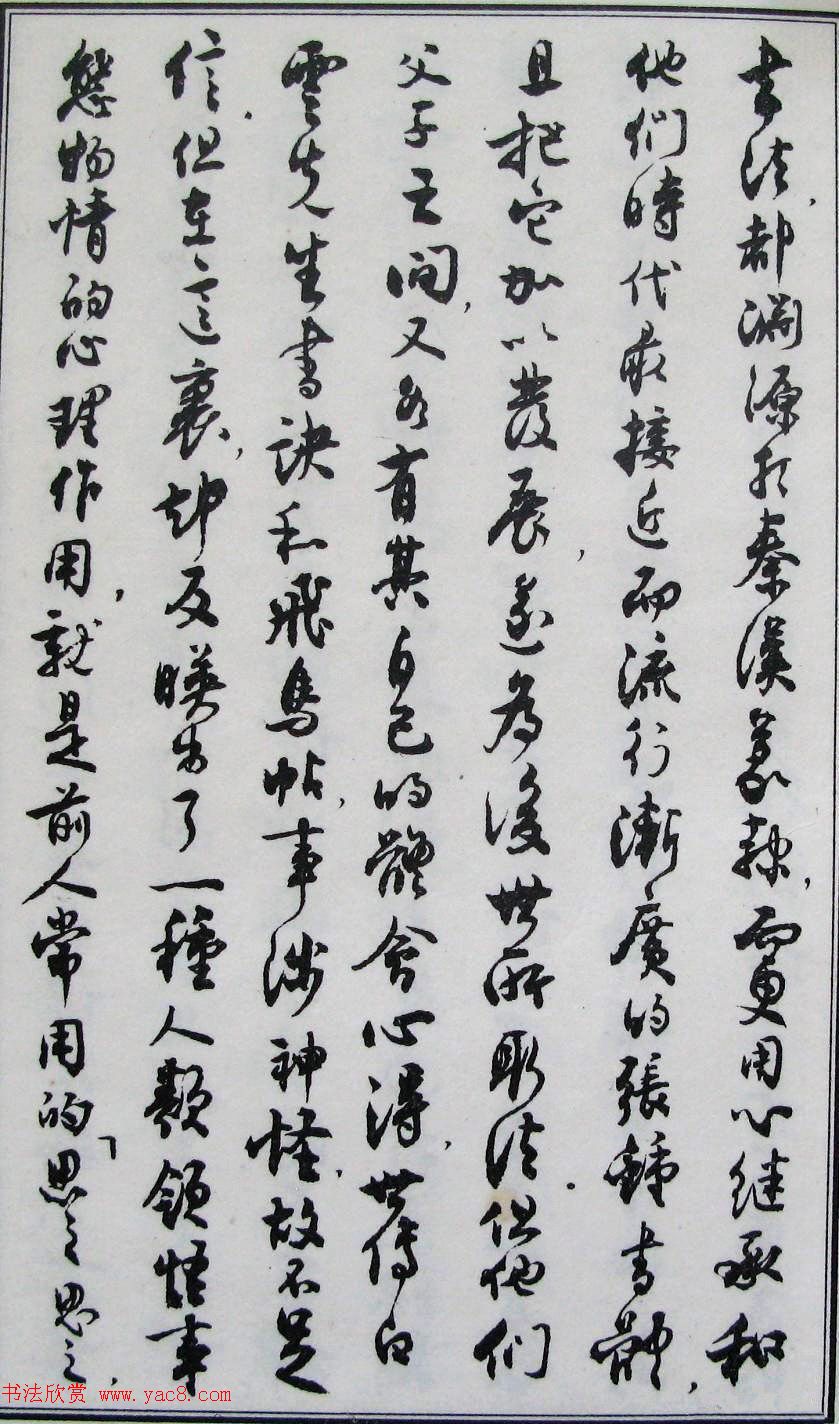 書法，都淵源於秦漢篆隸，而更用心繼承和
他們時代最接近而流行漸廣的張鍾書體，
且把它加以發展，遂為後世所取法。但他們
父子之間，又各有其自己的體會心得，世傳白
雲先生書訣和飛鳥帖，事涉神怪，故不足
信，但在這裏，却反映出了一種人類領悟事
態物情的心理作用，就是前人常用的「思之思之，
书法欣赏 www.yac8.com